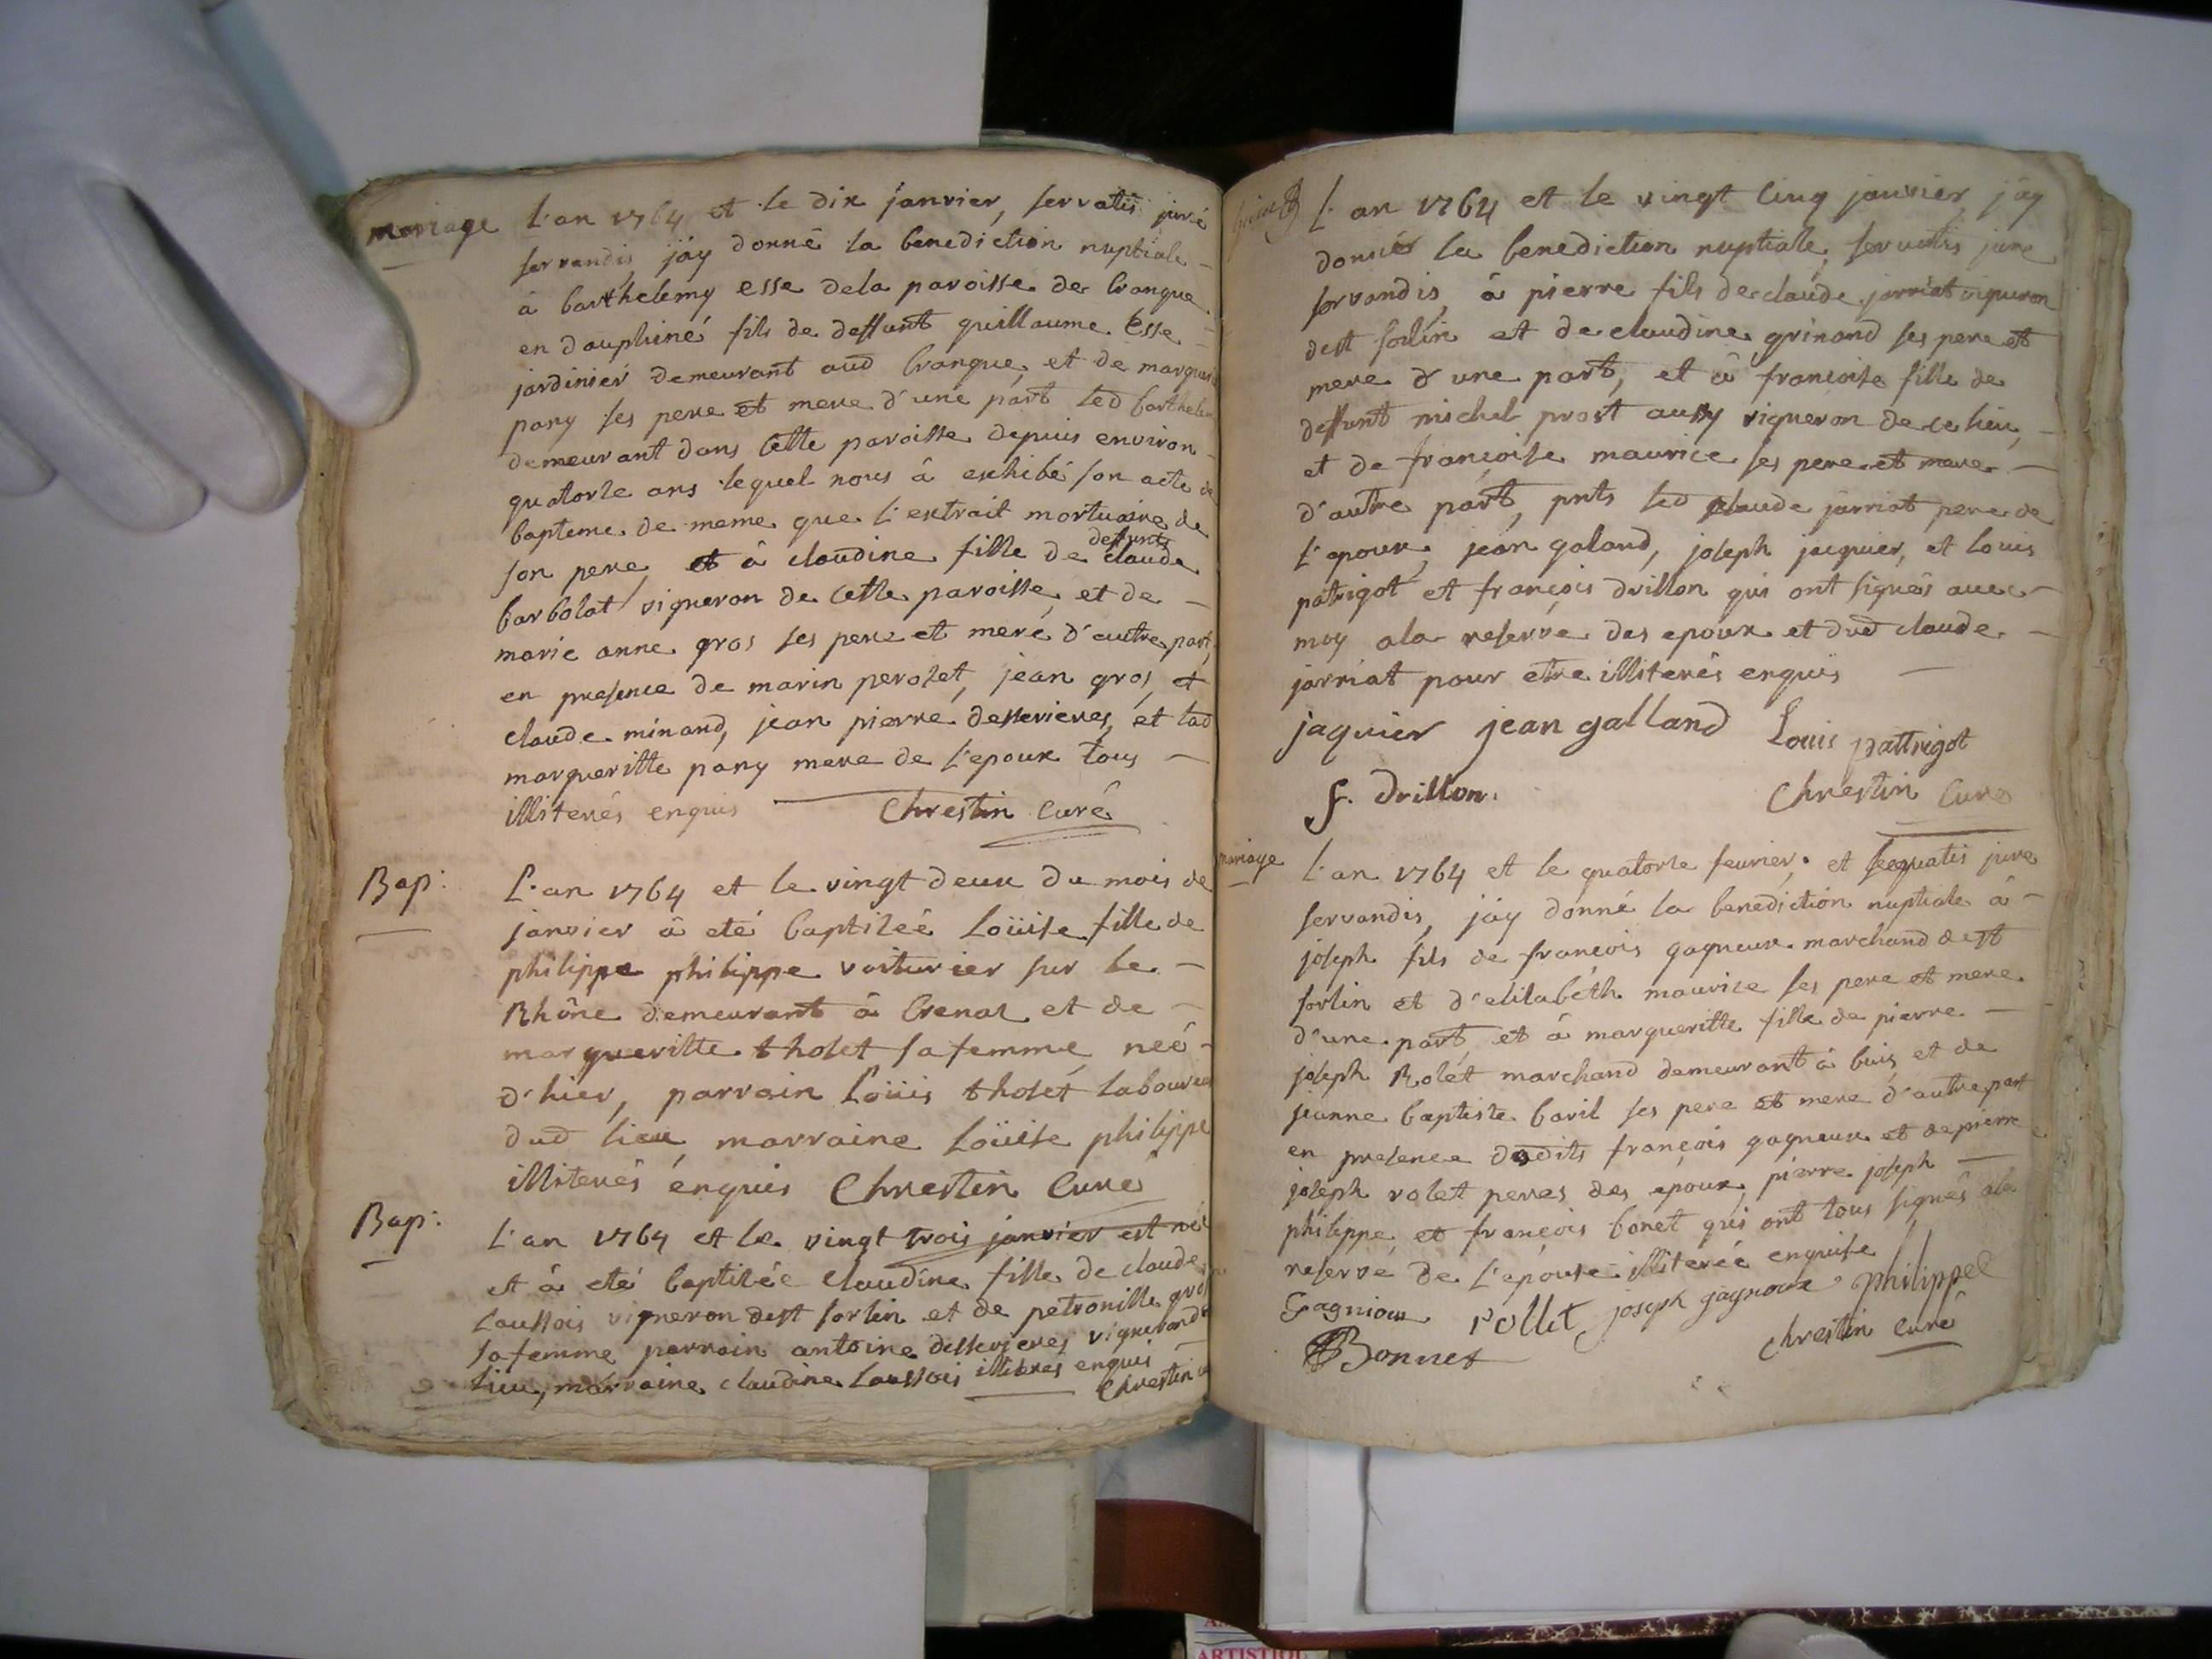 mariage L'an 1764 et le dix janvier, servatis juré
servandis, j'ay donné la benediction nuptiale -
à barthelemy esse dela paroisse de brangue
en dauphiné fils de deffunt guillaume Esse -
jardinier demeurant aud brangue, et de marguer
pany ses pere et mere d'une part led barthelem
demeurant dans Cette paroisse depuis environ
quatorze ans lequel nous à exhibé son acte de
bapteme de meme que l'extrait mortuaire de
son pere, et à claudine fille de deffunts claude
barbolat vigneron de Cette paroisse, et de -
marie anne gros ses pere et meré d'autre part,
en presence de marin perozet, jean gros, et
claude minand, jean pierre desserieres, et lad
margueritte pany mere de l'epoux tous -
illiterés enquis Chrestin Curé
Bap: L'an 1764 et le vingt deux du mois de
janvier à eté baptiseé Loüise fille de
philippe philippe voiturier sur le -
Rhône demeurant à brenaz et de -
margueritte tholet sa femme, neé -
d'hier, parrain Loüis tholet laboureur
dud lieu, marraine Loüise philippe
illiterés enquis Chrestin Curé
Bap: L'an 1764 et le vingt trois janvier est neé
et à eté baptisée Claudine fille de claude
Laussois vigneron dest sorlin et de petronille gros
sa femme parrain antoine desserjeres vigneron d
lieu, marraine claudine laussois illiteres enquis
Chrestin
L'an 1764 et le vingt cinq janvier, j'ay
donné la benediction nuptiale, servatis jure
servandis, à pierre fils de claude jarriat vigneron
dest sorlin et de claudine grinand ses pere et
mere d'une part, et à francoise fille de
deffunt michel prost aussy vigneron de ce lieu, -
et de françoise maurice ses pere et mere -
d'autre part, pnts led claude jarriat pere de
l'epoux, jean galand, joseph jaquier, et Louis
patrigot et françois drillon qui ont signés avec -
moy ala reserve des epoux et dud claude -
jarriat pour etre illiterés enquis -
jaquier jean galland Louis pattrigot
f. Drillon. Chrestin Curé
mariage L'an 1764 et le quatorze fevrier, et servatis jure
servandis, j'ay donné la benediction nuptiale à -
joseph fils de françois gagneux marchand dest
sorlin et d'elisabéth maurice ses pere et mere
d'une part, et à margueritte fille de pierre -
joseph Rolét marchand demeurant à buis, et de
jeanne baptiste baril ses pere et mere d'autre part
en presence desdits françois gagneux et de pierre
joseph rolet peres des epoux, pierre joseph -
philippe, et françois bonet qui ont tous signés ala
reserve de l'epouse illiterée enquise
Gagnioux rollet joseph gagnoux philippe
Bonnet chrestin curé
ARTISTIQL